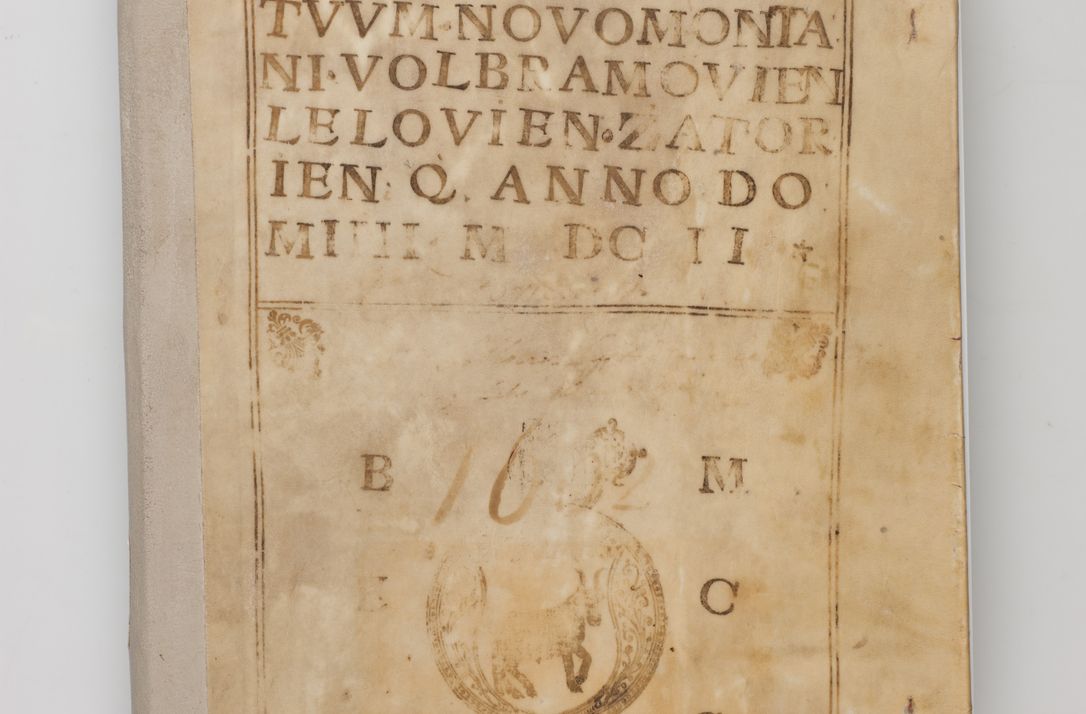 TVVM·NOVOMONTA
NI·VOLBRAMOVIEN
LELOVIEN·ZATOR
IEN Q. ANNO DO
MINI M DC II
B 1602 M
E C